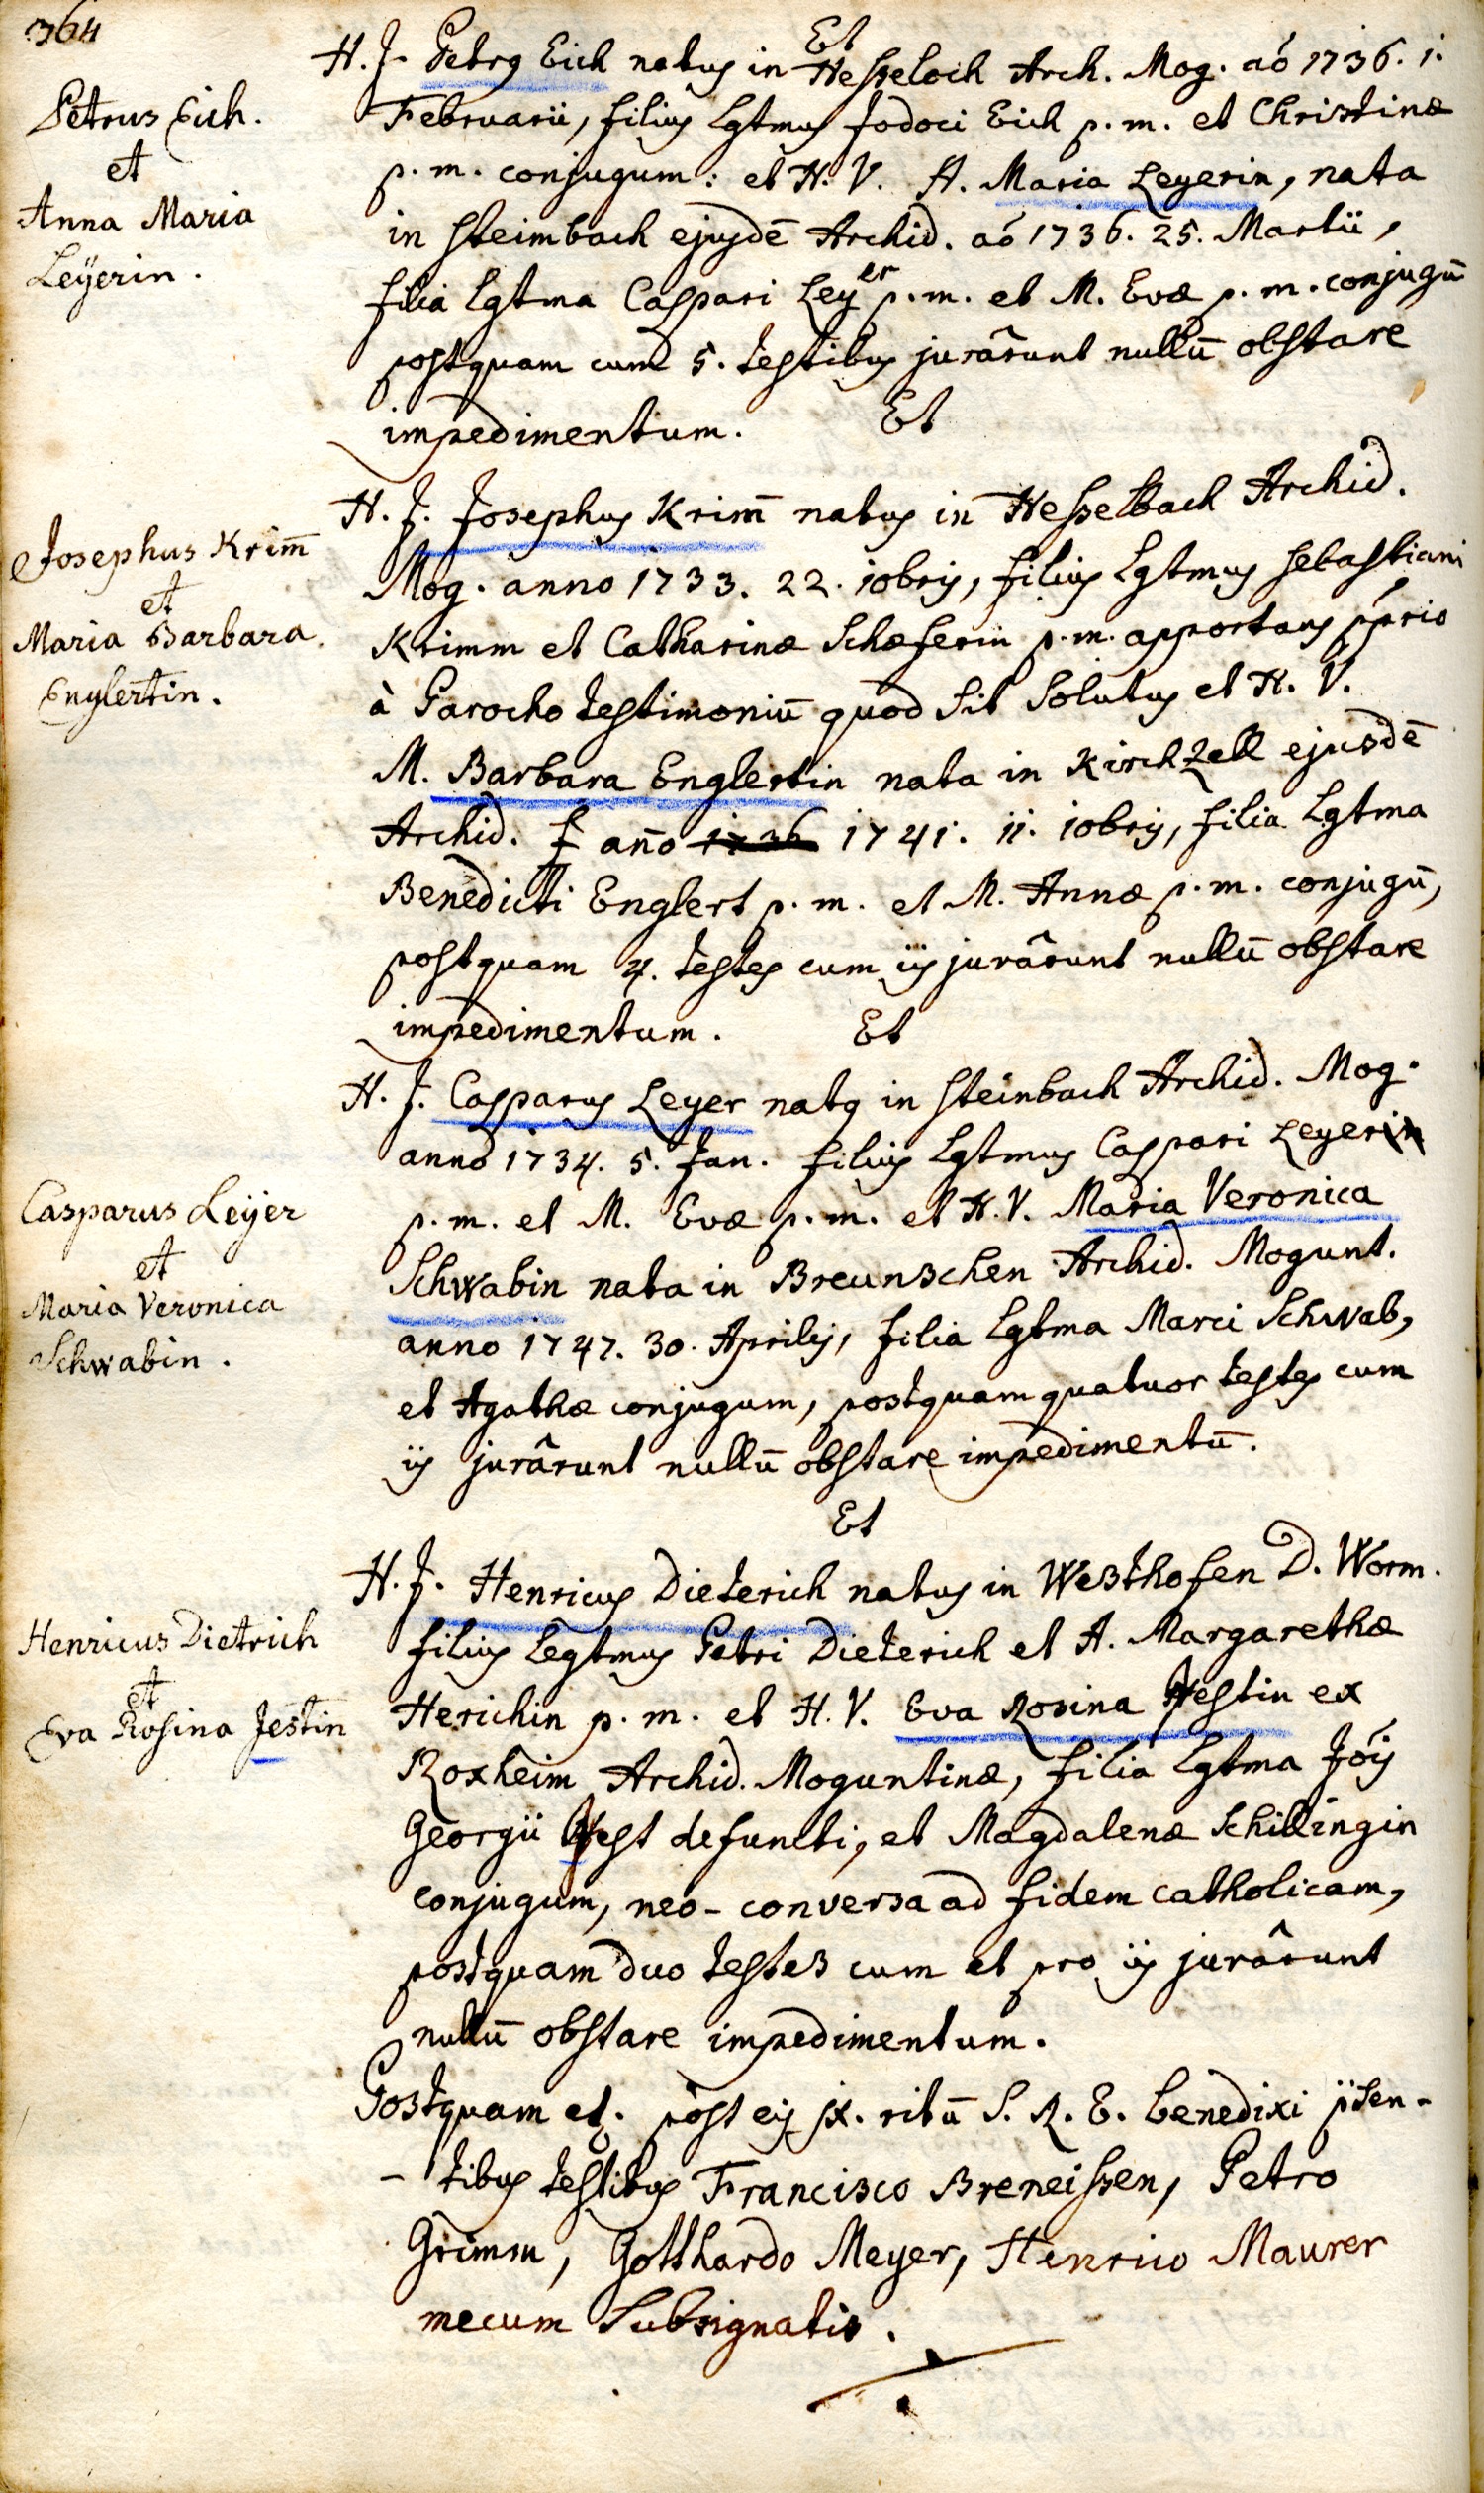 364
Et
H. J. Petrg Eich natus in Hesseloch Arch. Mog. aō 1736. 1.
Petrus Eich.
et
Anna Maria
Leÿerin.
Februarii, filius Lgtmus Jodoci Eich p. m. et Christinæ
p. m. conjugum: et H. V. A. Maria Leyerin, nata
in Steimbach ejusdē Archid. aō 1736. 25. Martii,
filia Lgtma Caspari Leyer p. m. et M. Evæ p. m. conjugū
postquam cum 5. testibus jurârunt nullū obstare
impedimentum.
Et
H. J. Josephus Krim̄ natus in Hesselbach Archid.
Josephus Krim̄
et
Maria Barbara
Englertin.
Mog. anno 1733. 22. 10bris, filius Lgtmus Sebastiani
Krimm et Catharinæ Schæferin p. m. apportans p̄prio
à Parocho testimoniū quod sit solutus et H. V.
M. Barbara Englertin nata in Kirchzell ejusdē
Archid. f an̄o 1736 1741. 11. 10bris, filia Lgtma
Benedicti Englert p. m. et M. Annæ p. m. conjugū,
postquam 4. testes cum iis jurârunt nullū obstare
impedimentum.
Et
H. J. Casparus Leyer natg in Steinbach Archid. Mog.
anno 1734. 5. Jan. filius Lgtmus Caspari Leyerin
Casparus Leÿer
et
Maria Veronica
Schwabin.
p. m. et M. Evæ p. m. et H. V. Maria Veronica
Schwabin nata in Breunschen Archid. Mogunt.
anno 1747. 30. Aprilis, filia Lgtma Marci Schwab,
et Agathæ conjugum, postquam quatuor testes cum
iis jurârunt nullū obstare impedimentū.
Et
H. J. Henricus Dieterich natus in Westhofen D. Worm.
Henricus Dietrich
et
Eva Rosina Jestin
filius Legtmus Petri Dieterich et A. Margarethæ
Herichin p. m. et H. V. Eva Rosina Jestin ex
Roxheim Archid. Moguntinæ, filia Lgtma Jōis
Georgii Jest defuncti, et Magdalenæ Schillingin
conjugum, neo-conversa ad fidem catholicam,
postquam duo testes cum et pro iis jurârunt
nullū obstare impedimentum.
Postquam et. post eis jx. ritū S. R. E. benedixi p̄sen-
-tibus testibus Francisco Breneissen, Petro
Grimm, Gotthardo Meyer, Henrico Maurer
mecum subsignatis.